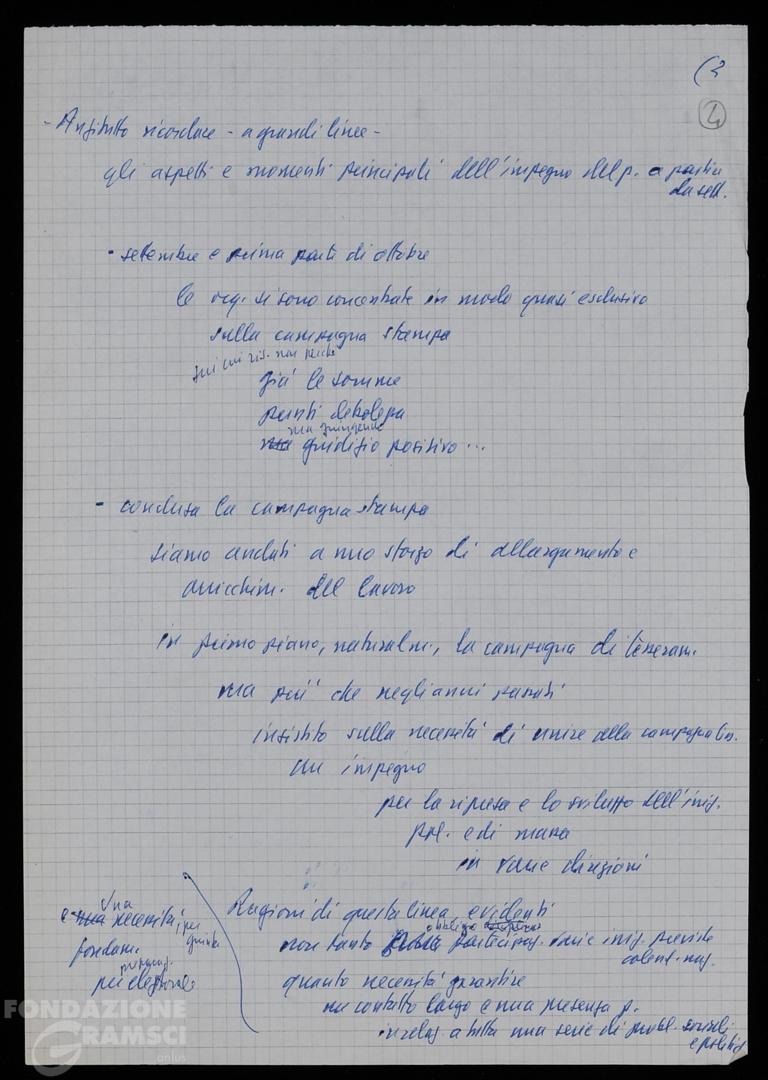 (2
2
- Anzitutto ricordare - a grandi linee -
gli aspetti e momenti principali dell'impegno del p. a partire
da sett.
- settembre e prima parte di ottobre
le org. si sono concentrate in modo quasi esclusivo
sulla campagna stampa
sui cui ris. non perché
già le somme
punti debolezza
ma
giudizio positivo ...
- conclusa la campagna stampa
siamo andati a uno sforzo di allargamento e
arricchim. del lavoro
in primo piano, naturalm., la campagna di tesseram.
ma più che negli anni passati
insistito sulla necessità di unire alla campagna tess.
un impegno
per la ripresa e lo sviluppo dell'iniz.
pol. e di massa
in varie direzioni
Ragioni di questa linea evidenti
non tanto partecipaz. varie iniz. previste
calend. naz.
quanto necessità garantire
un contatto largo e una presenza p.
in relaz. a tutta una serie di probl. sociali
e politici
e una necessità, per
fondam.
preparaz.
pre elettorale
FONDAZIONE
GRAMSCI
onlus